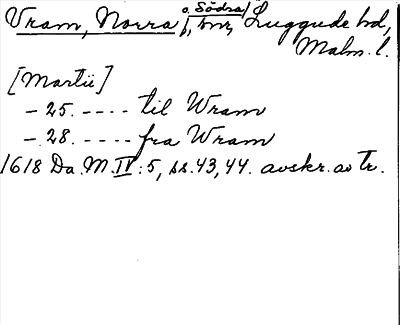 Vram, Norra o. Södra, Luggude hd,
Malm. l.
[Martii]
– 25. - - - - til Wram
– 28. - - - - fra Wram
1618 Da. M. IV: 5, ss. 43, 44. avskr. av Tr.